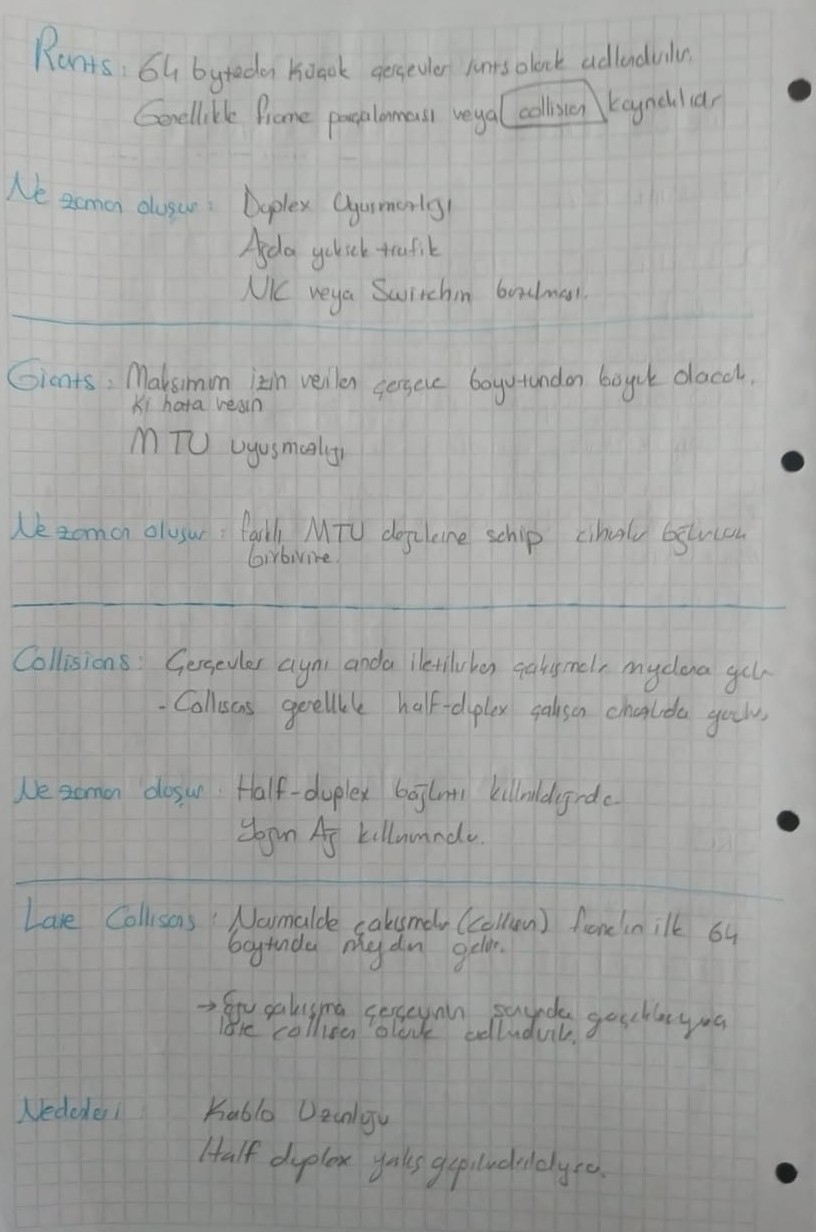 Runts: 64 byteden küçük çerçeveler runts olarak adlandırılır.
Genellikle frame parçalanması veya collision kaynaklıdır
Ne zaman oluşur: Duplex Uyuşmazlığı
Ağda yüksek trafik
NIC veya Switchin bozulması.
Giants: Maksimum izin verilen çerçeve boyutundan büyük olacak.
ki hata versin
MTU uyuşmazlığı
Ne zaman oluşur: farklı MTU değerlerine sahip cihazlar bağlanırsa
birbirine.
Collisions: Çerçeveler aynı anda iletilirken çakışmalar meydana gelir
- Collisions genellikle half-duplex çalışan cihazlarda
Ne zaman oluşur: Half-duplex bağlantı kullanıldığında
Yoğun Ağ kullanımında.
Late Collisions: Normalde çakışmalar (Collision) frame'in ilk 64
baytında meydana gelir.
→ Eğer çakışma çerçevenin sonunda
late collision olarak adlandırılır.
Nedenleri: Kablo Uzunluğu
Half duplex yanlış